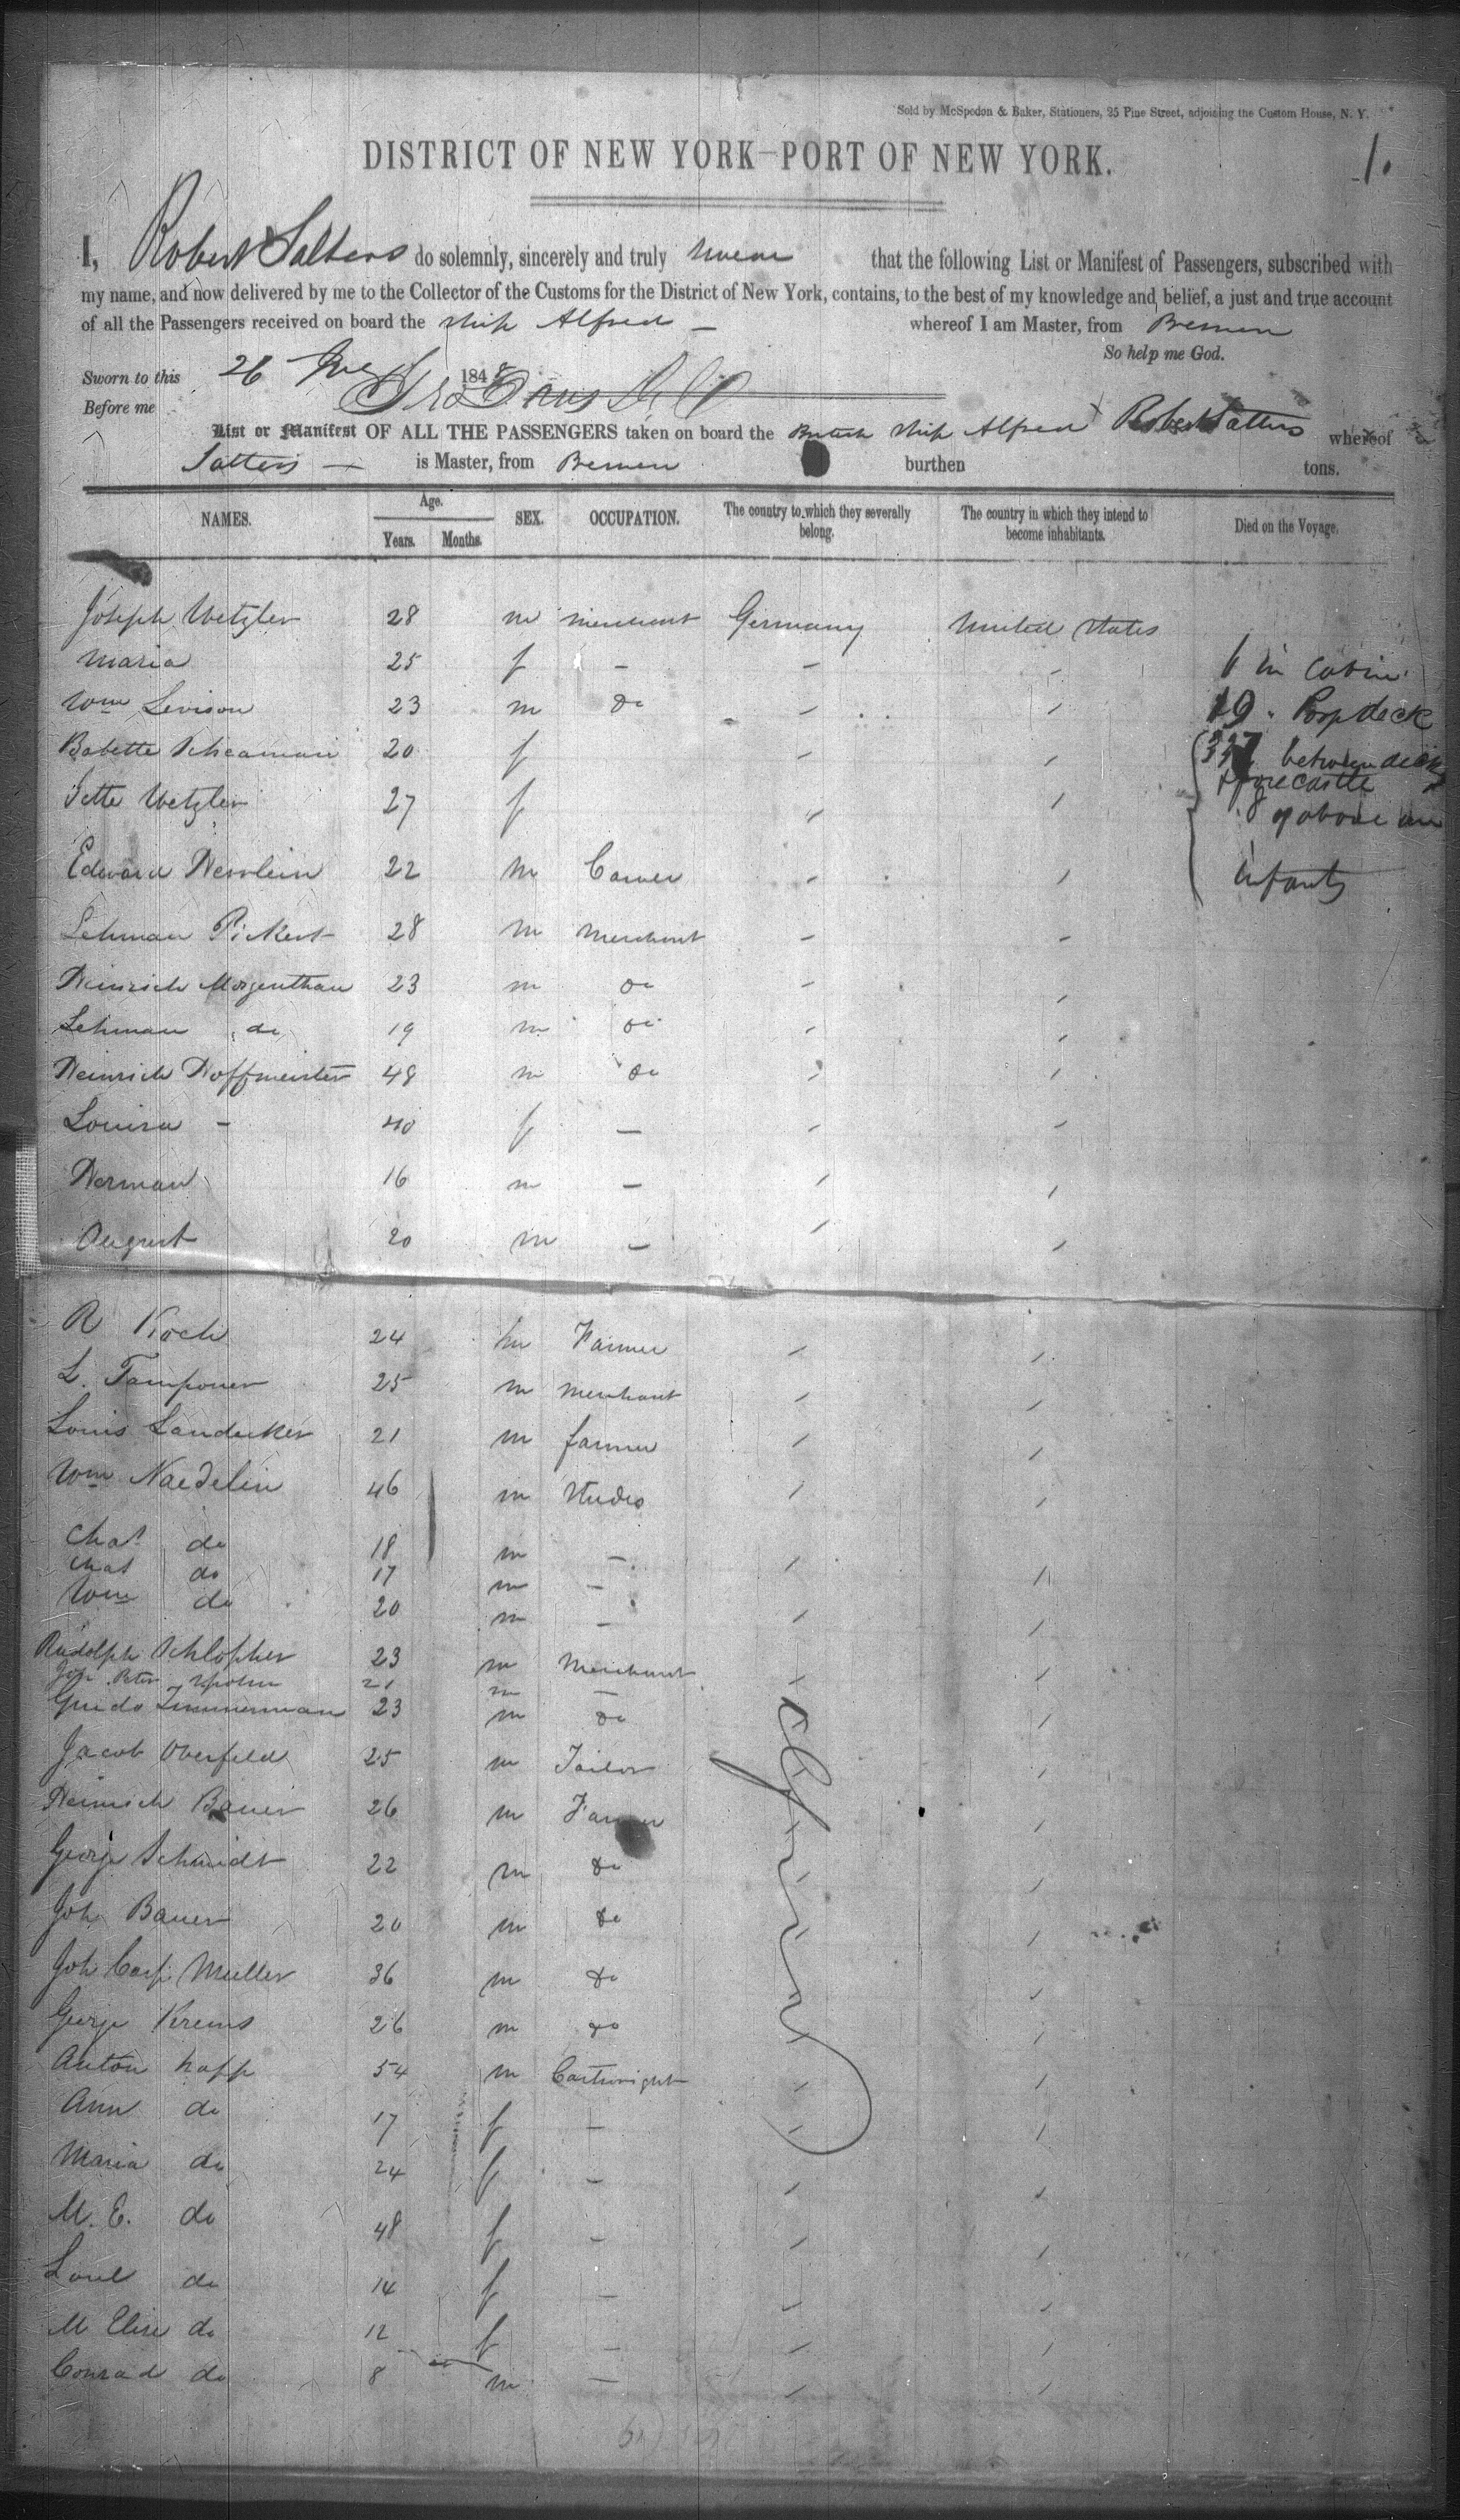 Sold by McSpedon & Baker, Stationers, 25 Pine Street, adjoining the Custom House, N. Y.
1.
DISTRICT OF NEW YORK-PORT OF NEW YORK.
I, Robert Salters do solemnly, sincerely and truly swear that the following List or Manifest of Passengers, subscribed with
my name, and now delivered by me to the Collector of the Customs for the District of New York, contains, to the best of my knowledge and belief, a just and true account
of all the Passengers received on board the ship Alfred — whereof I am Master, from Bremen
So help me God.
Sworn to this 26 184
Before me
List or Manifest OF ALL THE PASSENGERS taken on board the British ship Alfred Robert Salters whereof
Salters — is Master, from Bremen burthen tons.
NAMES. Age. Years. Months. SEX. OCCUPATION. The country to which they severally belong. The country in which they intend to become inhabitants. Died on the Voyage.
Joseph Wetzler 28 m merchant Germany United States
Maria 25 f — 6 in cabin
Wm Levison 23 m do 19 " Poop deck
Babette 20 f between decks
& forecastle
Jette Wetzler 27 f 8 of above are
Edward 22 m infants
Lehman Pickert 28 m Merchant
Heinrich Morgenthau 23 m do
Lehman do 19 m do
Heinrich Hoffmeister 48 m do
Louisa - 40 f —
Herman 16 m —
August 20 m —
R Koch 24 m Farmer
L. 25 m merchant
Louis Landecker 21 m farmer
Wm Naedelin 46 m
Chas do 18 m —
Chas do 17 m —
Wm do 20 m —
Rudolph 23 m Merchant
Joh Peter 21 m —
Guido Zimmerman 23 m do
Jacob Oberfeld 25 m Tailor
Heinrich Bauer 26 m Farmer
George Schmidt 22 m do
Joh Bauer 20 m do
Joh Casp Muller 36 m do
George Krems 26 m do
Anton 54 m Cartwright
Ann do 17 f —
Maria do 24 f —
M. E. do 48 f —
do 14 f —
M Elise do 12 f —
Conrad do 8 m —